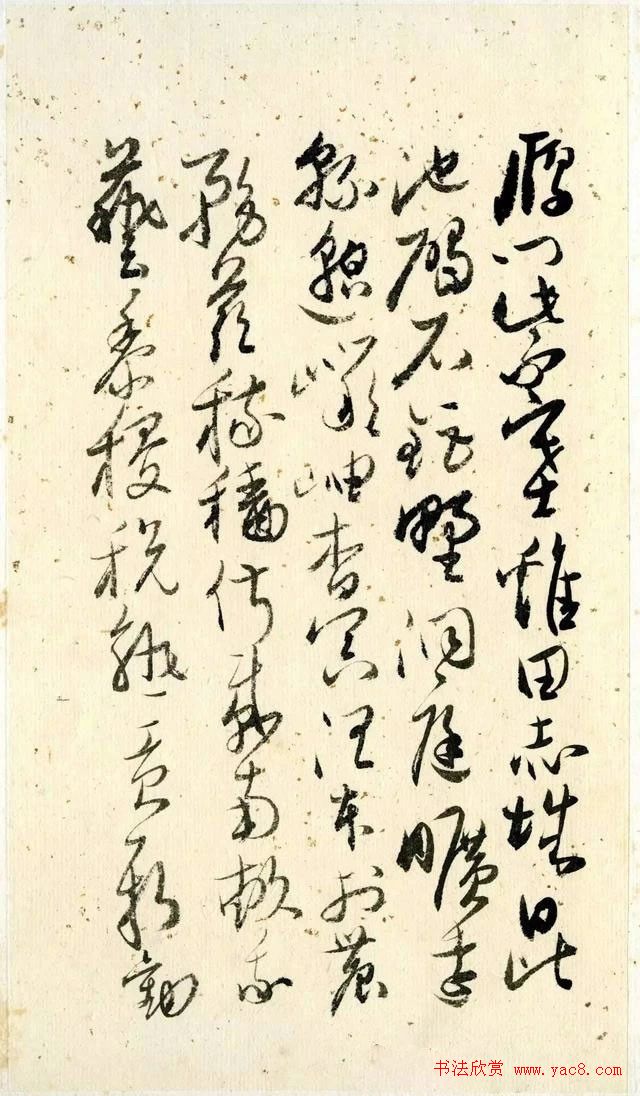 鴈門紫塞雞田赤城昆
池碣石鉅野洞庭曠遠
緜邈巖岫杳冥治本於農
務茲稼穡俶載南畝我
藝黍稷稅熟貢新勸
书法欣赏 www.yac8.com